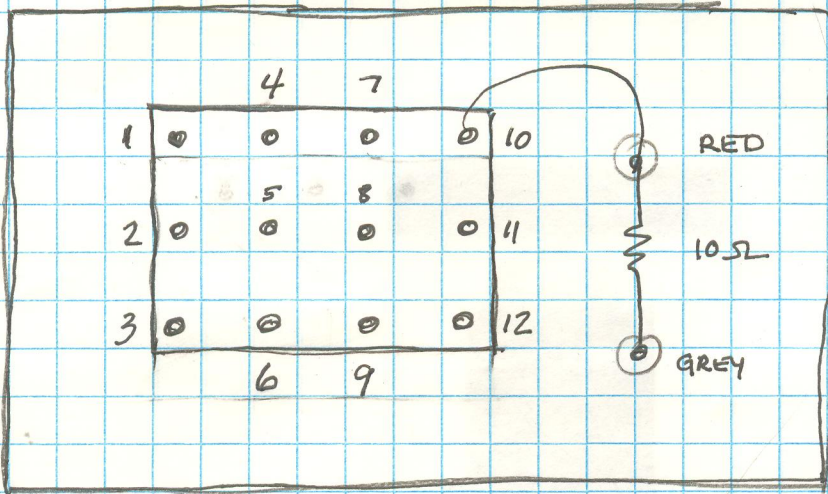 4 7
1 10 RED
5 8
2 11 10Ω
3 12
6 9 GREY